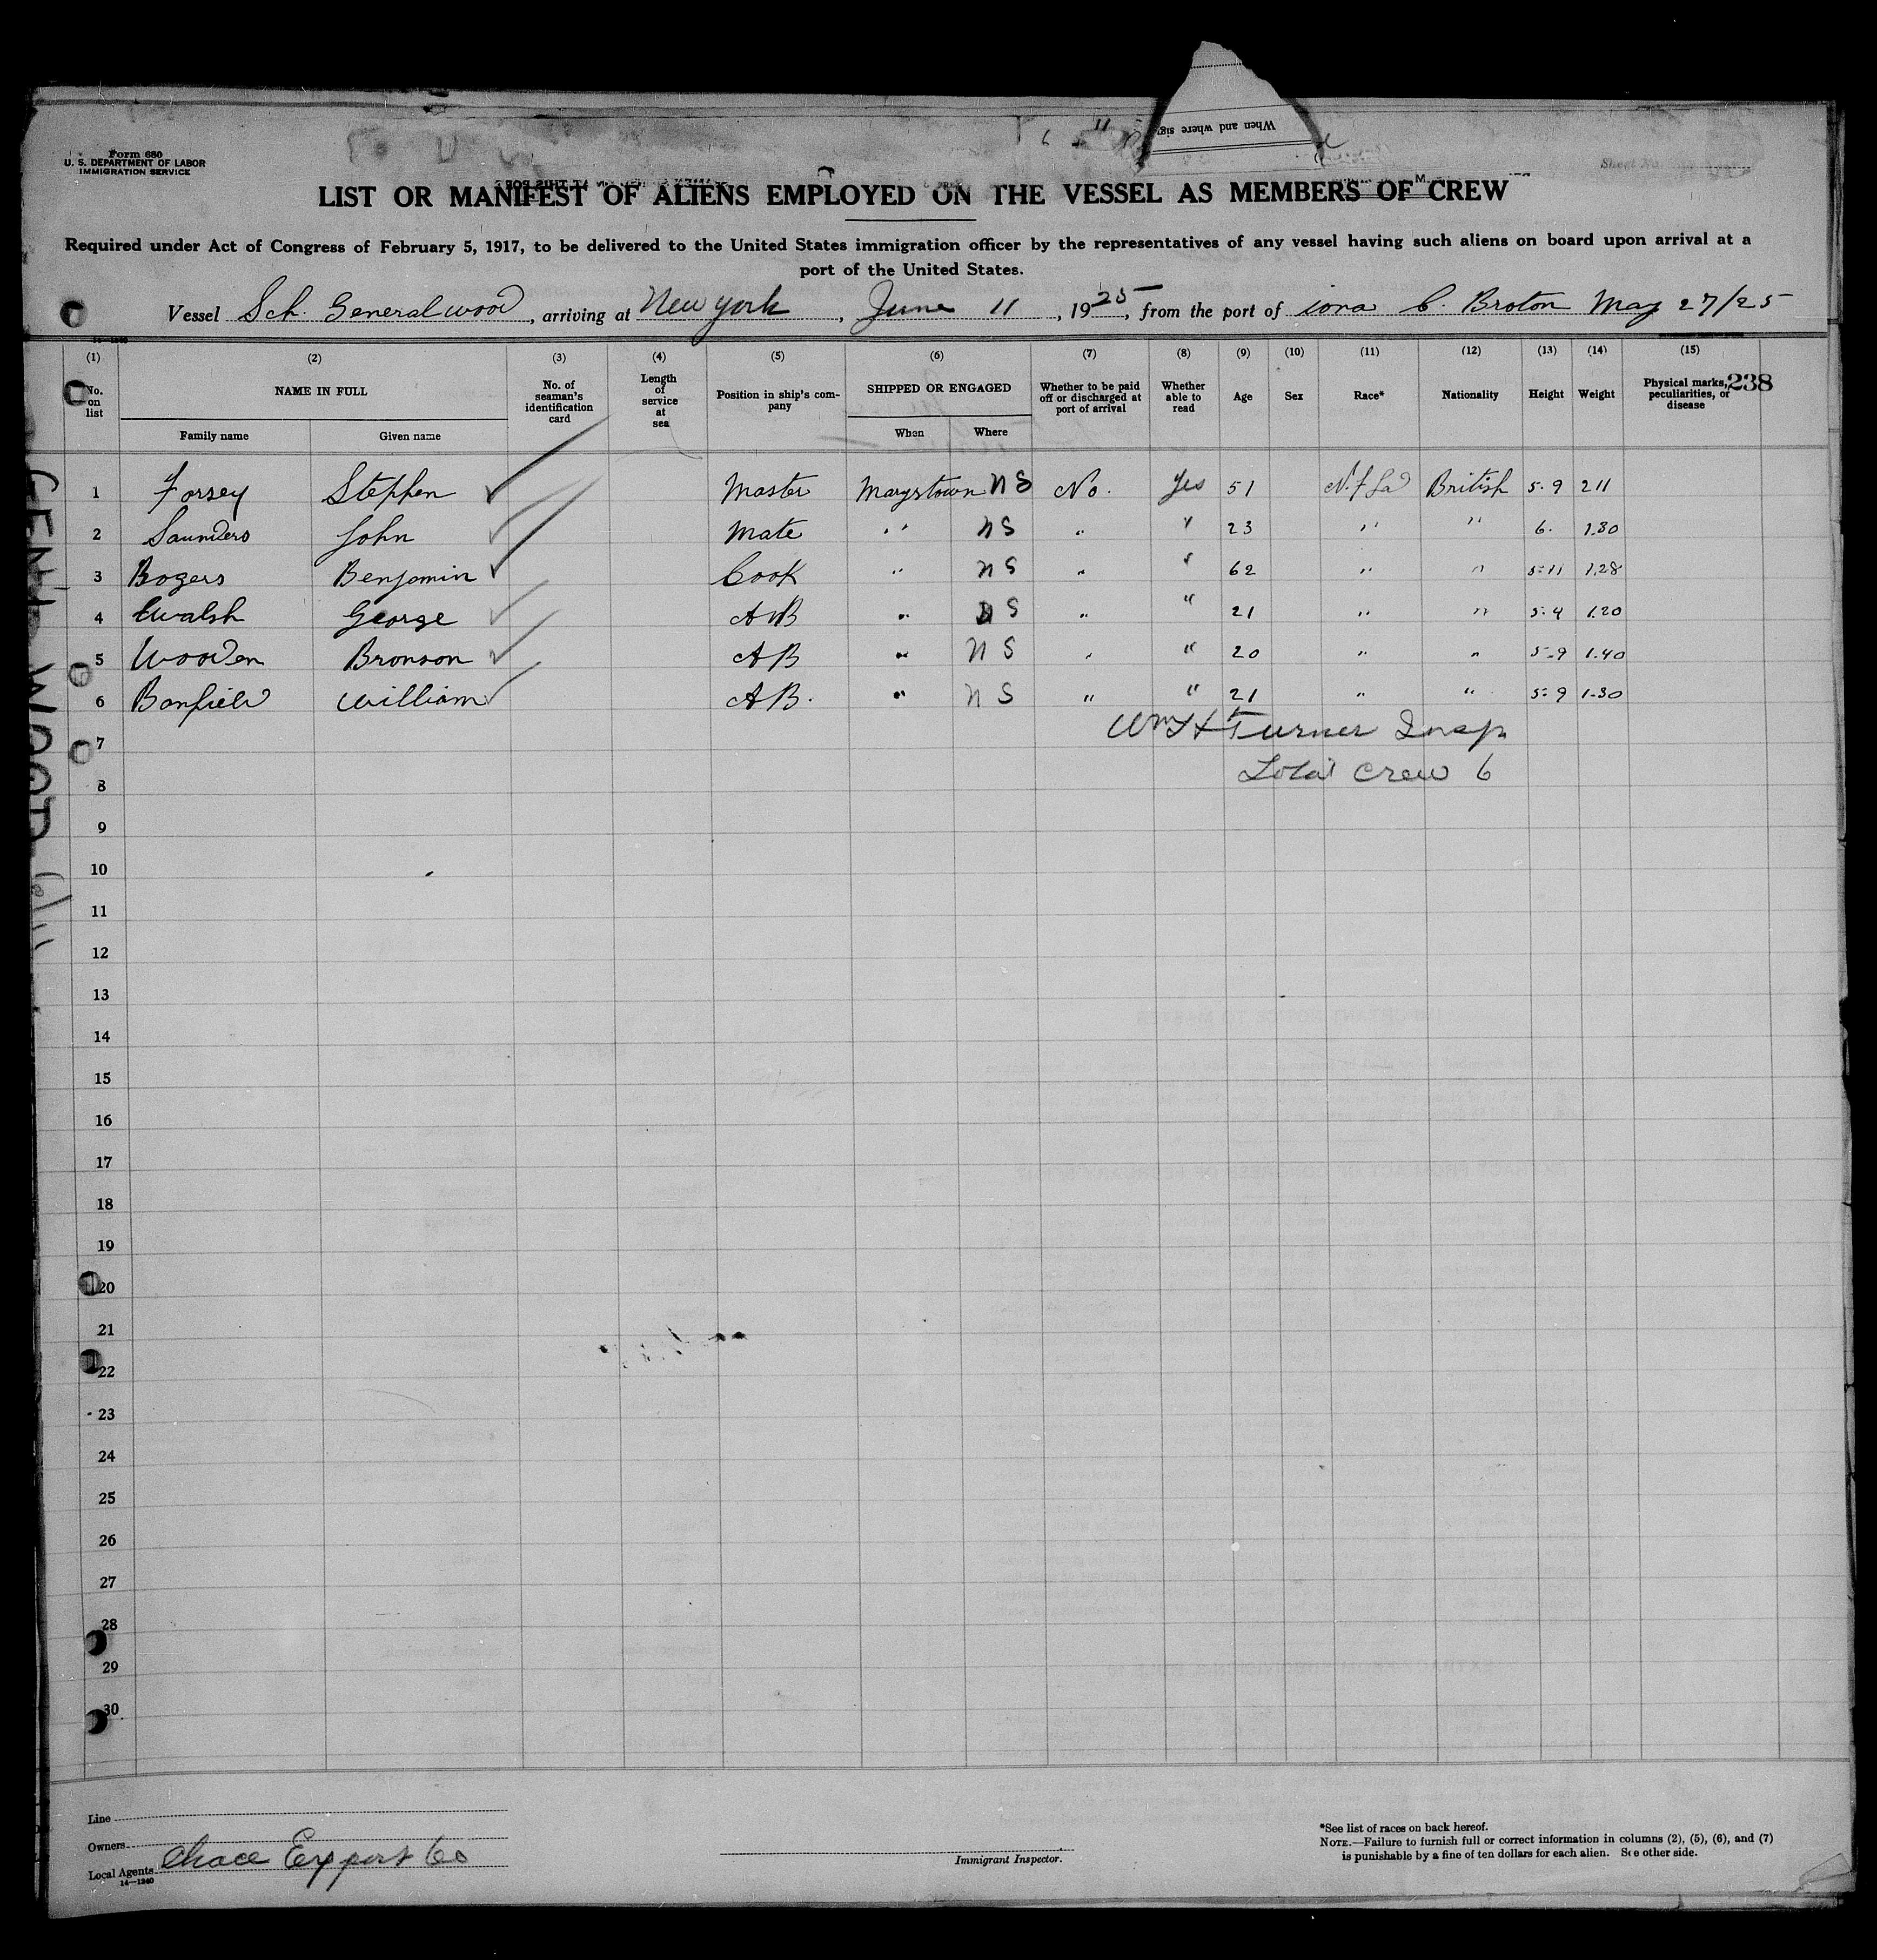 When and where sig
Form 680
U. S. DEPARTMENT OF LABOR
IMMIGRATION SERVICE
Sheet No.
LIST OR MANIFEST OF ALIENS EMPLOYED ON THE VESSEL AS MEMBERS OF CREW
Required under Act of Congress of February 5, 1917, to be delivered to the United States immigration officer by the representatives of any vessel having such aliens on board upon arrival at a
port of the United States.
Vessel Sch. General wood, arriving at New york, June 11, 1925, from the port of iona C. Broton May 27/25
(1) (2) (3) (4) (5) (6) (7) (8) (9) (10) (11) (12) (13) (14) (15)
No. on list NAME IN FULL No. of seaman's identification card Length of service at sea Position in ship's company SHIPPED OR ENGAGED Whether to be paid off or discharged at port of arrival Whether able to read Age Sex Race* Nationality Height Weight Physical marks, peculiarities, or disease 238
Family name Given name When Where
1 Forsey Stephen ✓ Master Marystown NS No. Yes 51 N.f Ld British 5.9 211
2 Saunders John ✓ Mate " NS " " 23 " " 6. 1.80
3 Rogers Benjamin ✓ Cook " NS " " 62 " " 5:11 1.28
4 Walsh George ✓ AB " NS " " 21 " " 5.4 1.20
5 Wooden Bronson ✓ AB " NS " " 20 " " 5.9 1.40
6 Banfield William ✓ AB. " NS " " 21 " " 5:9 1.30
7 Wm H Turner Insp
8 Total Crew 6
9
10
11
12
13
14
15
16
17
18
19
20
21
22
23
24
25
26
27
28
29
30
GENL WOOD 6/11
Line
Owners
Local Agents Chace Export Co
14—1240
Immigrant Inspector.
*See list of races on back hereof.
NOTE.—Failure to furnish full or correct information in columns (2), (5), (6), and (7)
is punishable by a fine of ten dollars for each alien. See other side.